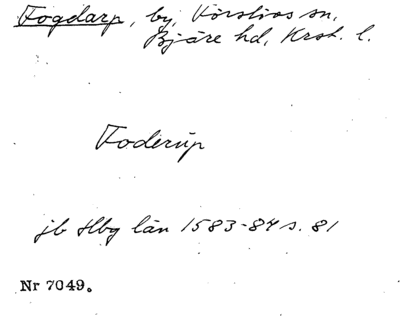 Fogdarp, by, Förslövs sn,
Bjäre hd, Krst. l.
Foderup
jb Hbg län 1583-84 s. 81
Nr 7049.